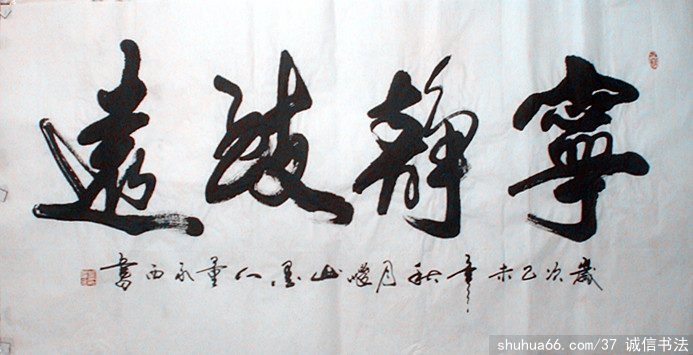 寧靜致遠
歲次乙未年秋月峻山墨人董永西書
shuhua66.com/37 诚信书法